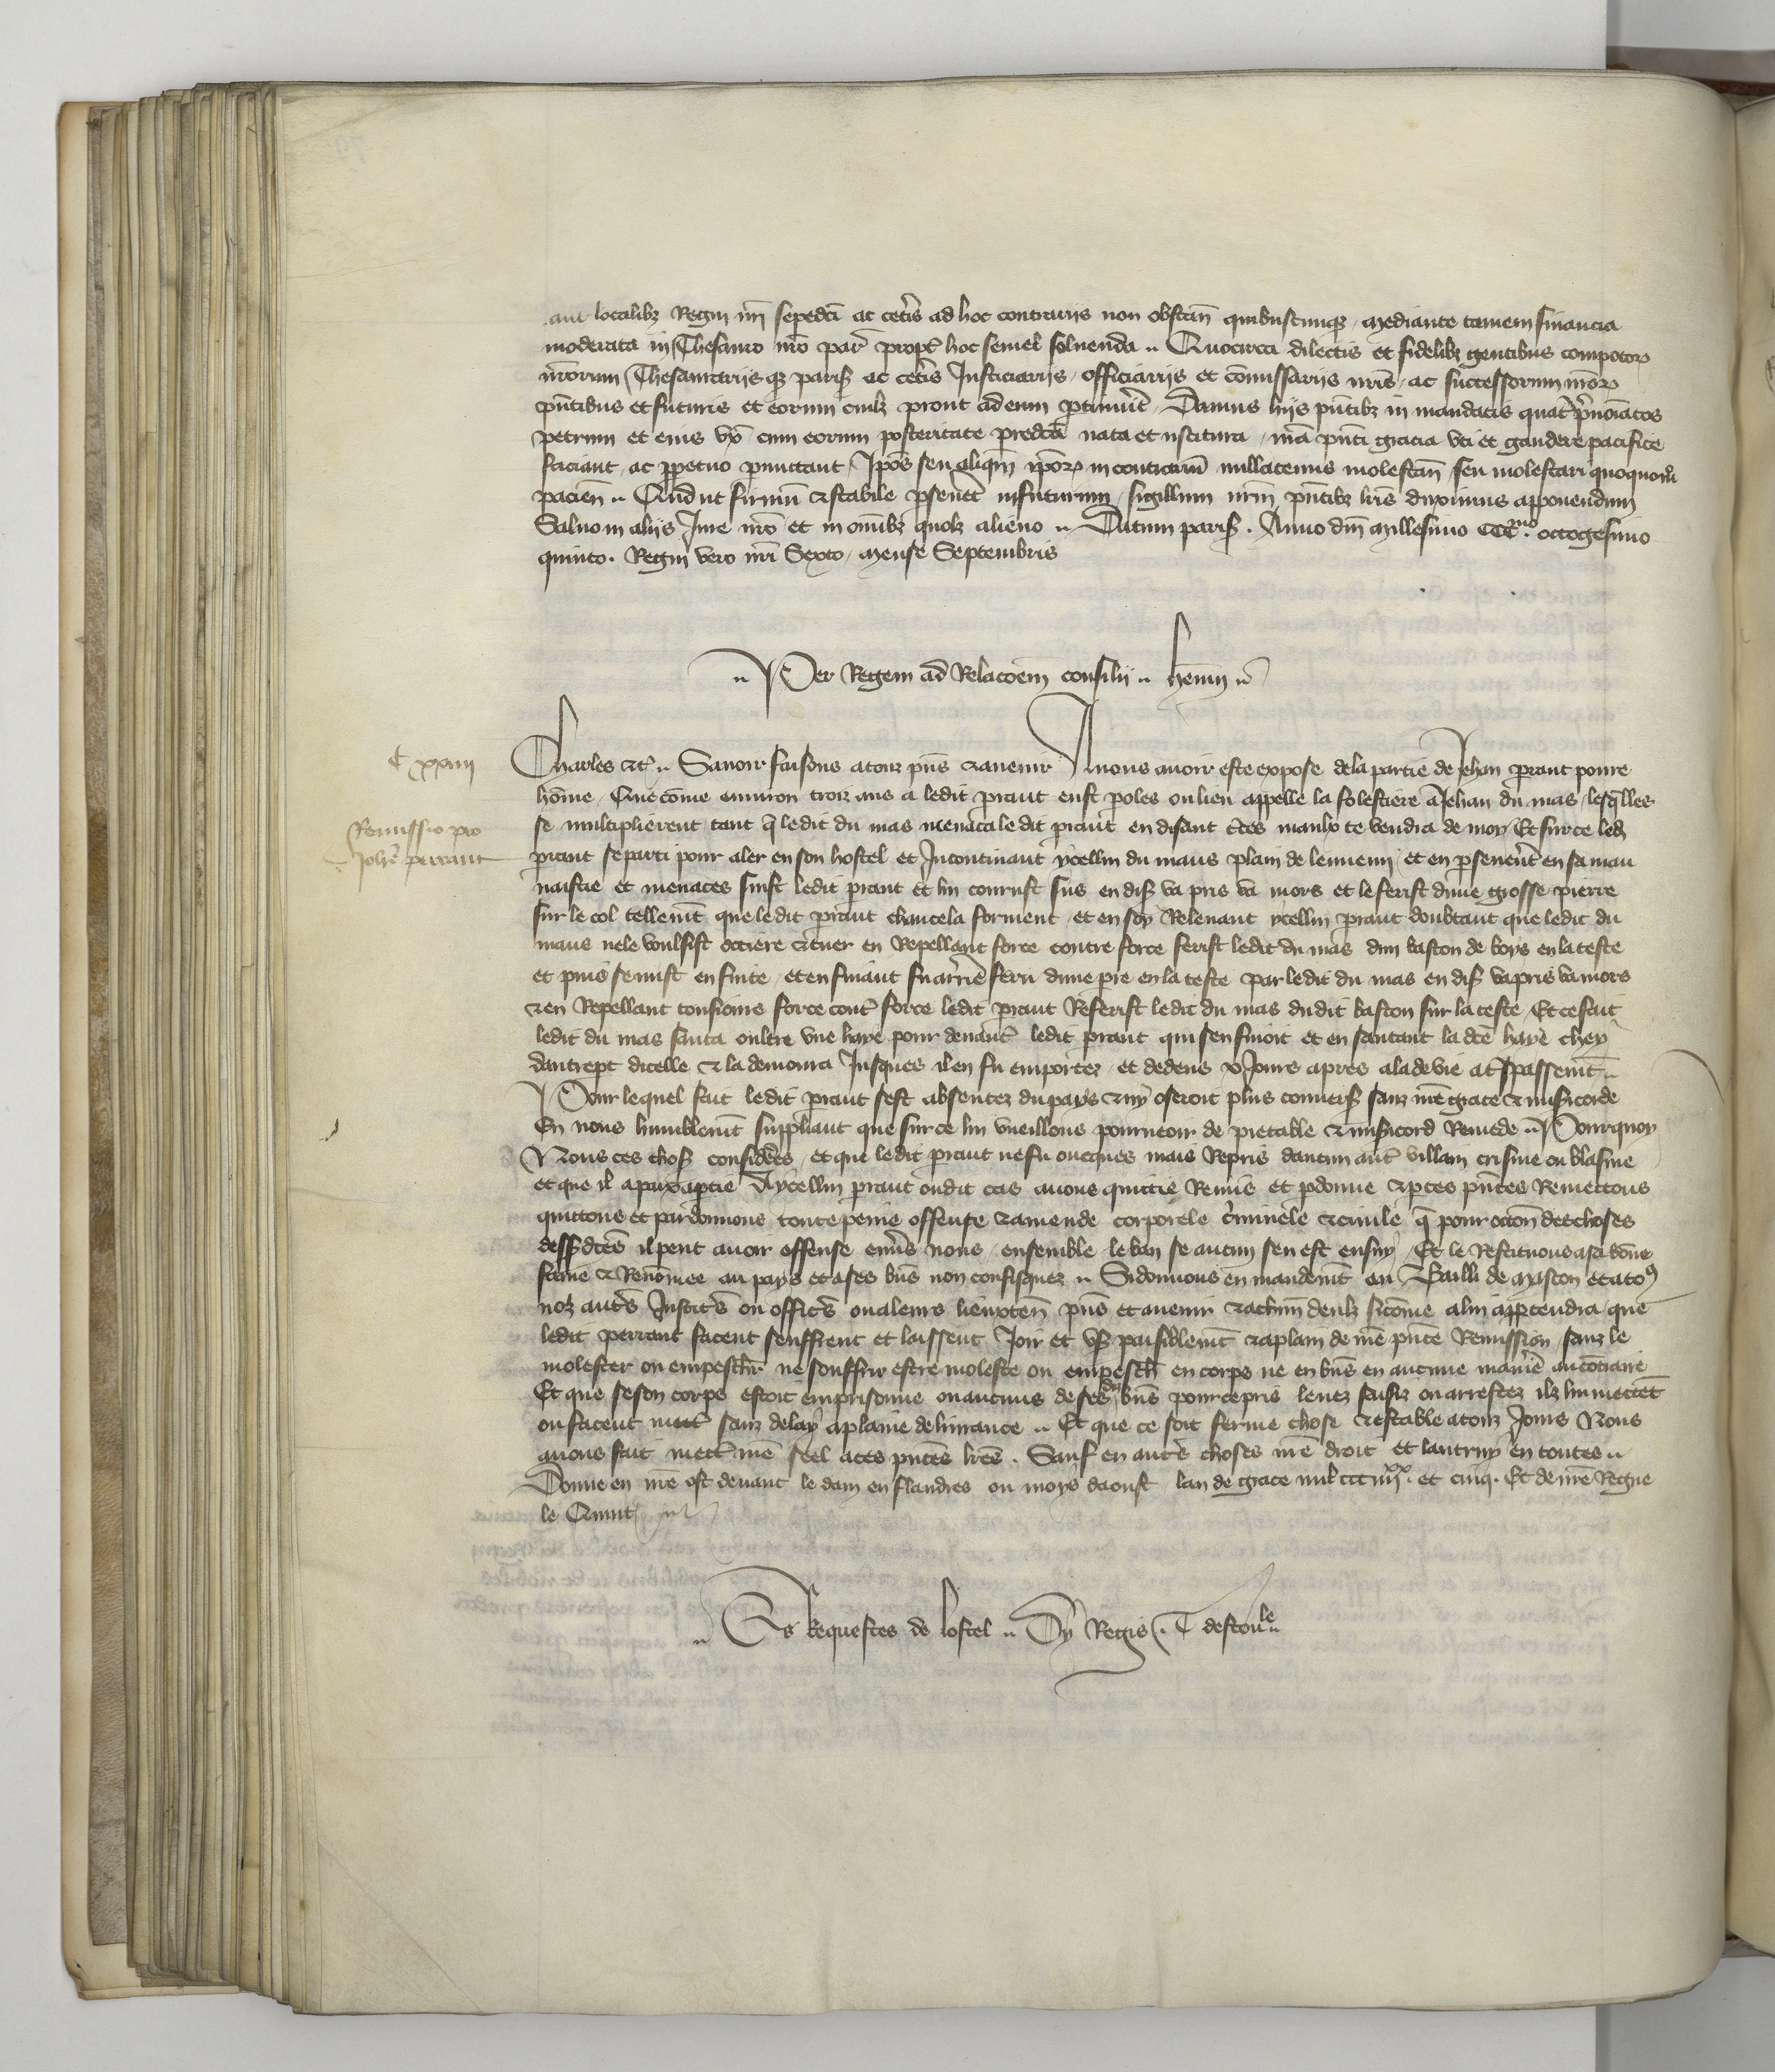 aut localibz Regni nri sepedci ac ceteris ad hoc contrariis non obstan quibuscunqz, mediante tamen financia
moderata in Thesauro nro par propt hoc semel soluenda .. Quocirca dilectis et fidelibz gentibus compotor
nrorum Thesaurariis qz paris ac ceteris Justiciariis, officiariis et comissariis nris, ac successorum nror
pntibus et futuris et eorum cuilz prout ad eum ptinuit, Damus hiis pntibz in mandatis quat prenoiatos
petrum et eius vx cum eorum posteritate predcta nata et nscitura, nra pnti gracia vti et gaudere pacifice
faciant, ac perpetuo pmittant, Ipos seu aliqm ipor in contrarium nullatenus molestan seu molestari quoquomo
pacien .. Quod ut firmu et stabile perseuet in futurum, sigillum nrm pntibz lris duximus apponendum
Saluo in aliis Jure nro et in omibz quolz alieno .. Datum paris. Anno dni millesimo CCCmo. octogesimo
quinto. Regni vero nri Sexto, mense Septembris
.. Per Regem ad Relacoem consilii .. henry ..
C xxiiii
Charles etc .. Sauoir faisons a touz pns et auenir A nous auoir este expose de la partie de Jehan perraut poure
home, Que come enuiron trois ans a ledit peraut eust poles ou lieu appelle la folestiere a Jehan du mas, lesqlles
se multiplierent tant q ledit du mas menaca ledit peraut en disant ctes manho te vendra de moy, Et sur ce led
Remissio pro
Johe perraut
peraut se parti pour aler en son hostel et Incontinant ycellui du maus plain de lennemi et en perseuent en sa mau
uaistie et menaces suist ledit peraut et lui courust sus en dis va pris va mors et le ferist dune grosse pierre
sur le col tellemt que ledit peraut chancela forment, et en soy Releuant ycellui peraut doubtant que ledit du
maus ne le voulsist occiere et tuer en Repellant force contre force ferist ledit du mas dun baston de boys en la teste
et puis se mist en fuite, et en fuiant fu arrie feru dune pre en la teste par ledit du mas en dis va pris va mors
et en Repellant tousiours force cont force ledit peraut Referist ledit du mas dudit baston sur la teste, Et ce fait
ledit du mas sauta oultre vne haye pour deuant ledit peraut qui sen fuioit et en sautant la dce haye chey
dautrept dicelle et la demoura Jusques il en fu emportez, et dedens v Jours apres ala de vie a trespassemt ..
Pour lequel fait ledit peraut sest absentez du pays et ny oseroit plus conuers sanz nre grace et misicorde
En nous humblemt suppliant que sur ce lui vueillons pourueoir de pietable et misicord Remede .. Pourquoy
Nous ces chos considees, et que ledit peraut ne fu oncques mais Repris daucun aut villain crisme ou blasme
et que il a paix a ptie A ycellui peraut ou dit cas auons quittie Remis et pdonne et p ces pntes Remettons
quittons et pardonnons toute peine offense et amende corporele criminele et ciuile q pour occon des choses
dessdces il peut auoir offense enus nous, ensemble le ban se aucun sen est ensuy, Et le Restituons a sa bone
fame et Renomee au pays et a ses bns non confisquez .. Si donnons en mandemt au Bailli de Mascon et a to9
noz autes Justices ou offices ou a leurs lieuxten pns et auenir et a chun deulz sicome a lui appertendra que
ledit perraut facent seuffrent et laissent Joir et vs paisiblemt et a plain de nre pnte Remission sanz le
molester ou empeschir ne souffrir estre moleste ou empesch en corps ne en bns en aucune maniere au contraire
Et que se son corps estoit emprisonne ou aucuns de ses diz bns pour ce pris leuez saisiz ou arrestez ilz lui mettet
ou facent mett sanz delay a plaine deliurance .. Et que ce soit ferme chose et estable a touz Jours Nous
auons fait mett nre seel a ces pntes lres. Sauf en autes choses nre droit et lautruy en toutes ..
Donne en nre ost deuant le dam en flandres ou moys daoust lan de grace mil ccc iiiixx. et cinq. Et de nre Regne
le Quint
.. Es Requestes de lostel .. Dy Regis. T destoule ..